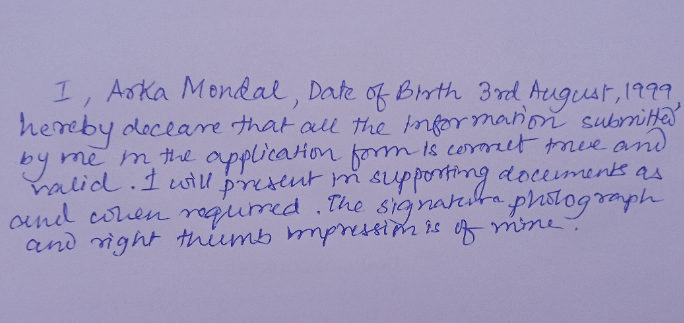 I, Arka Mondal, Date of Birth 3rd August, 1999
hereby decleare that all the information submitted
by me in the application form is correct true and
valid. I will present in supporting documents as
and when required. The signature photograph
and right thumb impression is of mine.